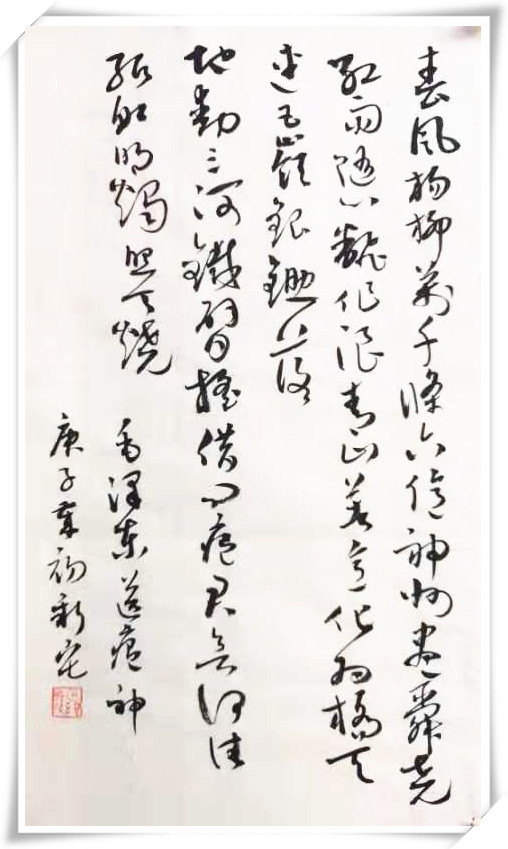 春風楊柳萬千條六億神州盡舜堯
紅雨隨心翻作浪青山著意化為橋天
連五嶺銀鋤落
地動三河鐵臂搖借問瘟君欲何往
紙船明燭照天燒
毛澤東送瘟神
庚子年初